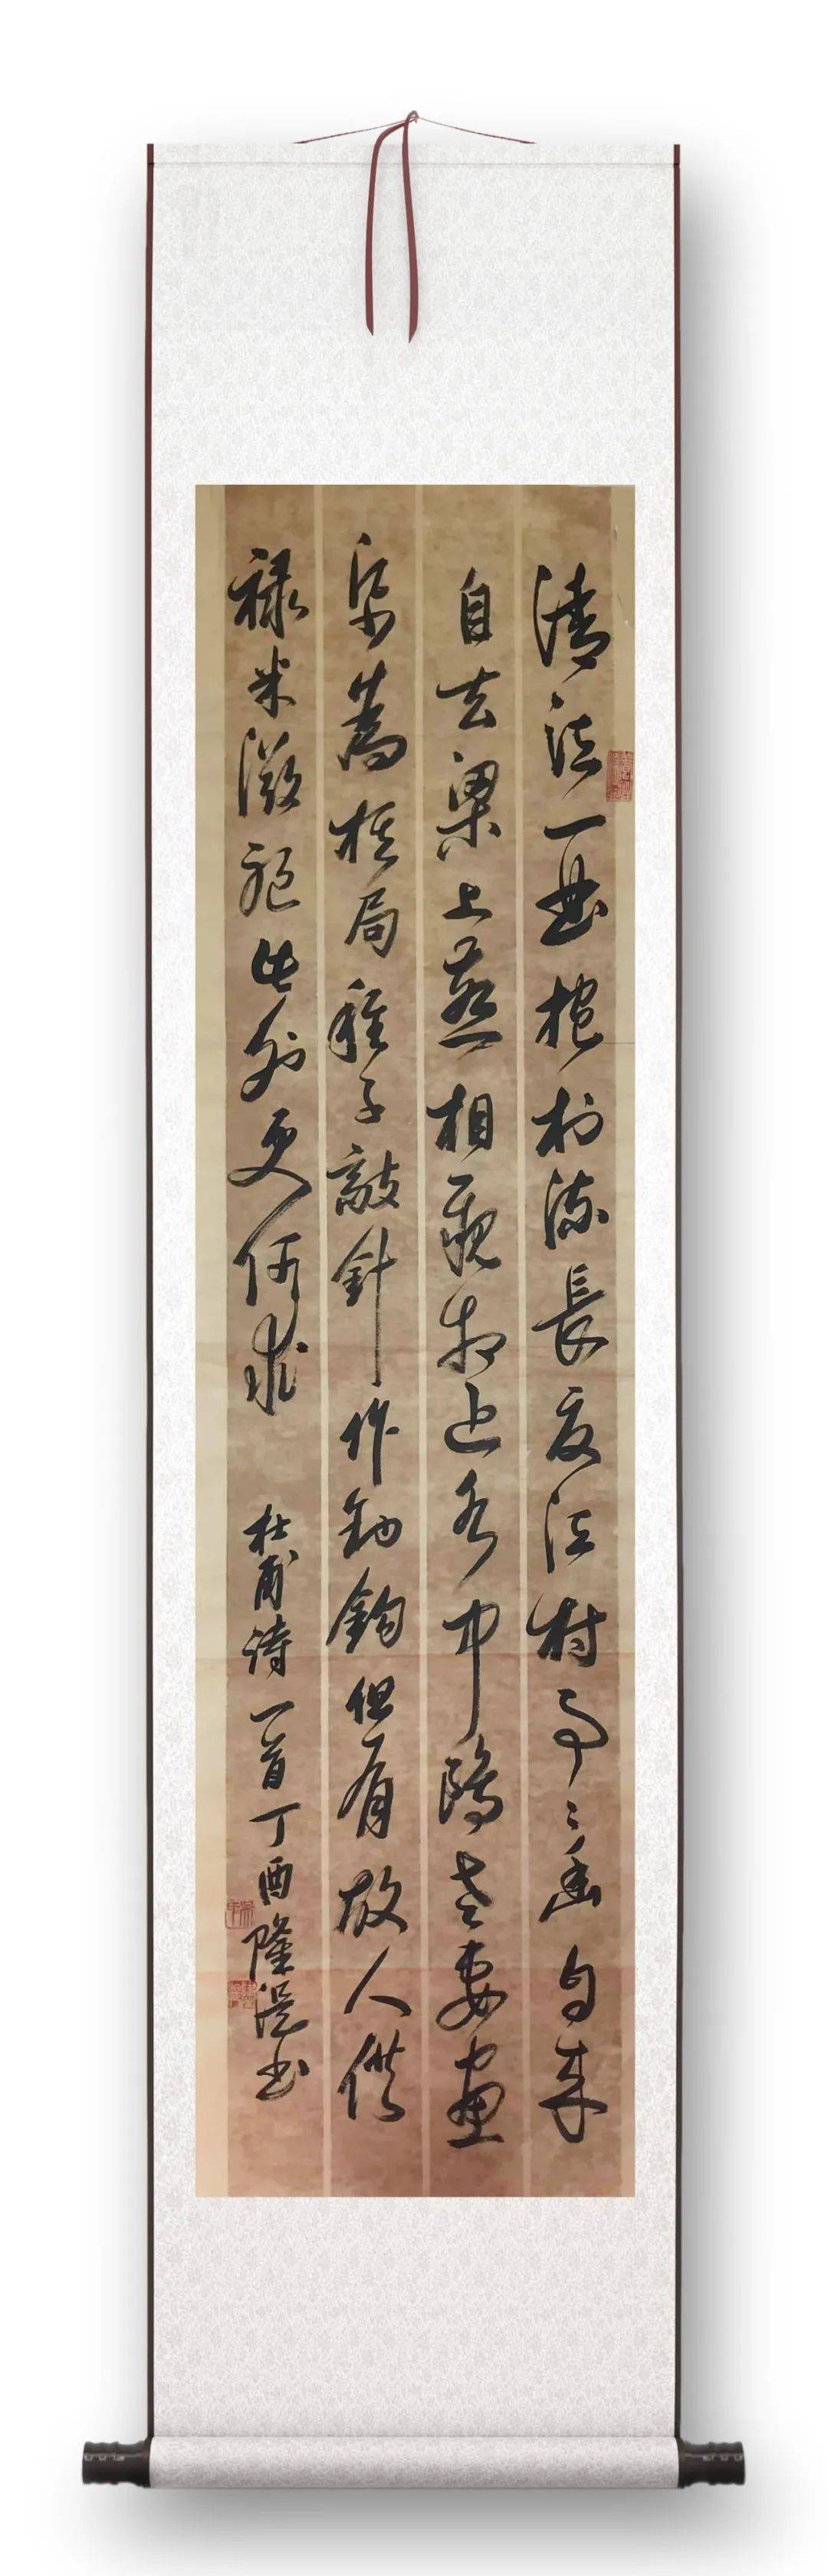 清江一曲抱村流長夏江村事〻幽自来
自去梁上燕相親相近水中鷗老妻畫
紙為棋局稚子敲針作釣鉤但有故人供
祿米微躯此外更何求
杜甫诗一首丁酉隆书